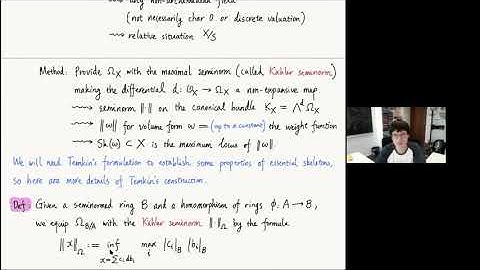 ⇝ any non-archimedean field
(not necessarily char 0 or discrete valuation)
⇝ relative situation X/S
Method: Provide Ω_X with the maximal seminorm (called Kähler seminorm)
making the differential d: O_X → Ω_X a non-expansive map
⇝ seminorm ‖·‖ on the canonical bundle K_X = Λ^d Ω_X
⇝ ‖ω‖ for volume form ω = (up to a constant) the weight function
⇝ Sk(ω) ⊂ X is the maximal locus of ‖ω‖.
We will need Temkin's formulation to establish some properties of essential skeletons,
so here are more details of Temkin's construction.
Def. Given a seminormed ring B and a homomorphism of rings φ: A → B,
we equip Ω_{B/A} with the Kähler seminorm ‖ ‖_Ω by the formula
‖x‖_Ω := inf_{x=Σc_i db_i} max_i |c_i|_B |b_i|_B